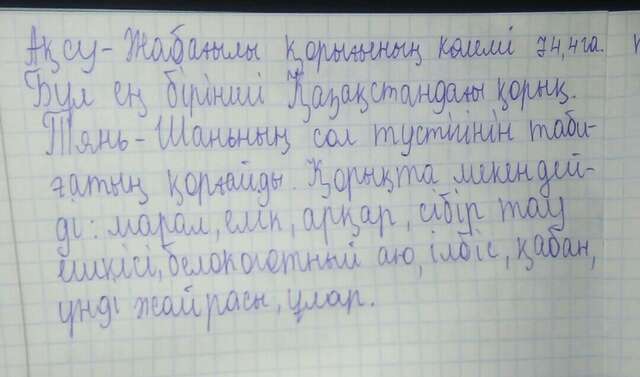 Ақсу-Жабағылы қорығының көлемі 74,4га.
Бұл ең бірінші Қазақстандағы қорық.
Тянь-Шаньның сол түстігінің таби-
ғатың қорғайды. Қорықта мекендей-
ді: марал, елік, арқар, сібір тау
ешкісі, белокоготный аю, ілбіс, қабан,
үнді жайрасы, ұлар.